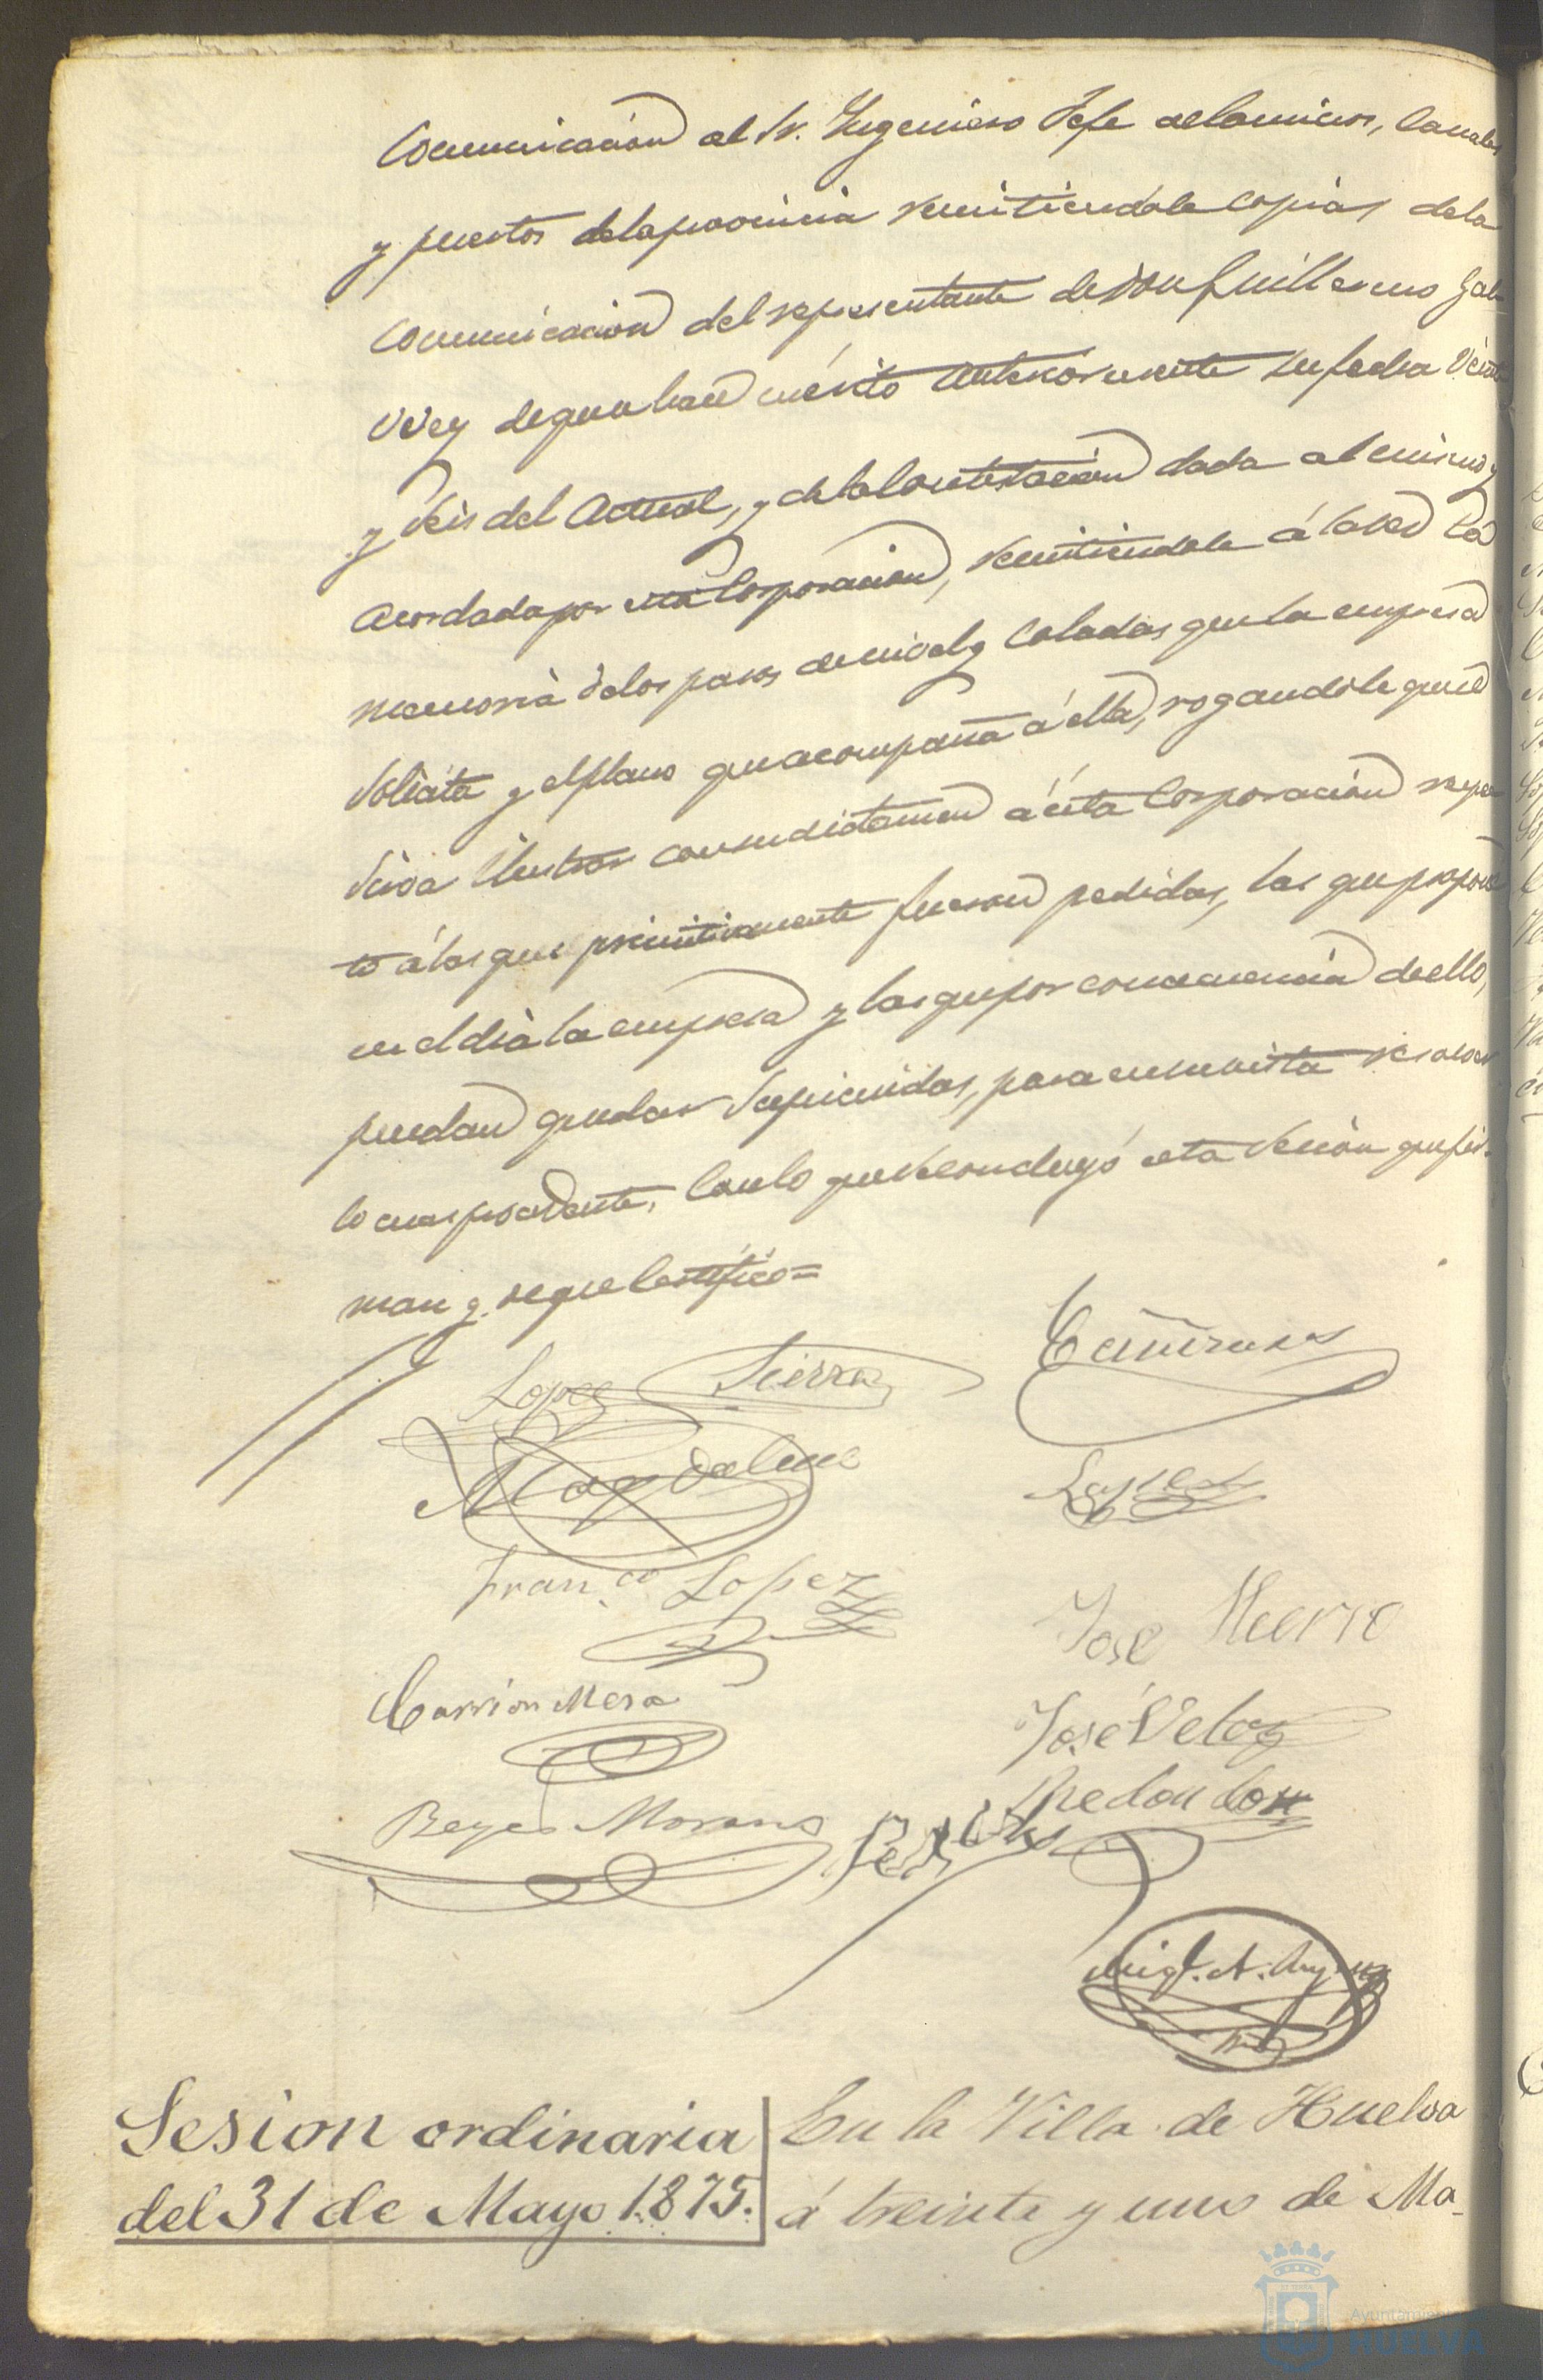 Comunicacion al Sr. Ingeniero Jefe de Caminos, Canales
y puertos de la provincia remitiendole copias de la
comunicacion del representante de Don Guillermo Gal-
vey de que se hace mérito anteriormente su fecha veinte
y seis del actual, y de la contestacion dada al mismo y
acordada por esta Corporacion, remitiendole á la vez la
memoria de los pasos de nivel y coladas que la empresa
solicita y el plano que acompaña á ella, rogandole que se
sirva ilustrar con su dictamen á esta Corporacion respec-
to á las que primitivamente fueron pedidas, las que propone
en el dia la empresa y las que por consecuencia de ello,
puedan quedar suprimidas, para en su vista resolver
lo mas procedente. Con lo que se concluyó esta sesion que fir-
man y de que certifico=
Lopez Sierra
Cañizares
Magdalena
Lopez
Fran.co Lopez
José
Carrion Mesa
José Velaz
Redondo
Reyes Moreno
Migl. A.
Sesion ordinaria
del 31 de Mayo 1.875.
En la Villa de Huelva
á treinta y uno de Ma-
Ayuntamiento
HUELVA